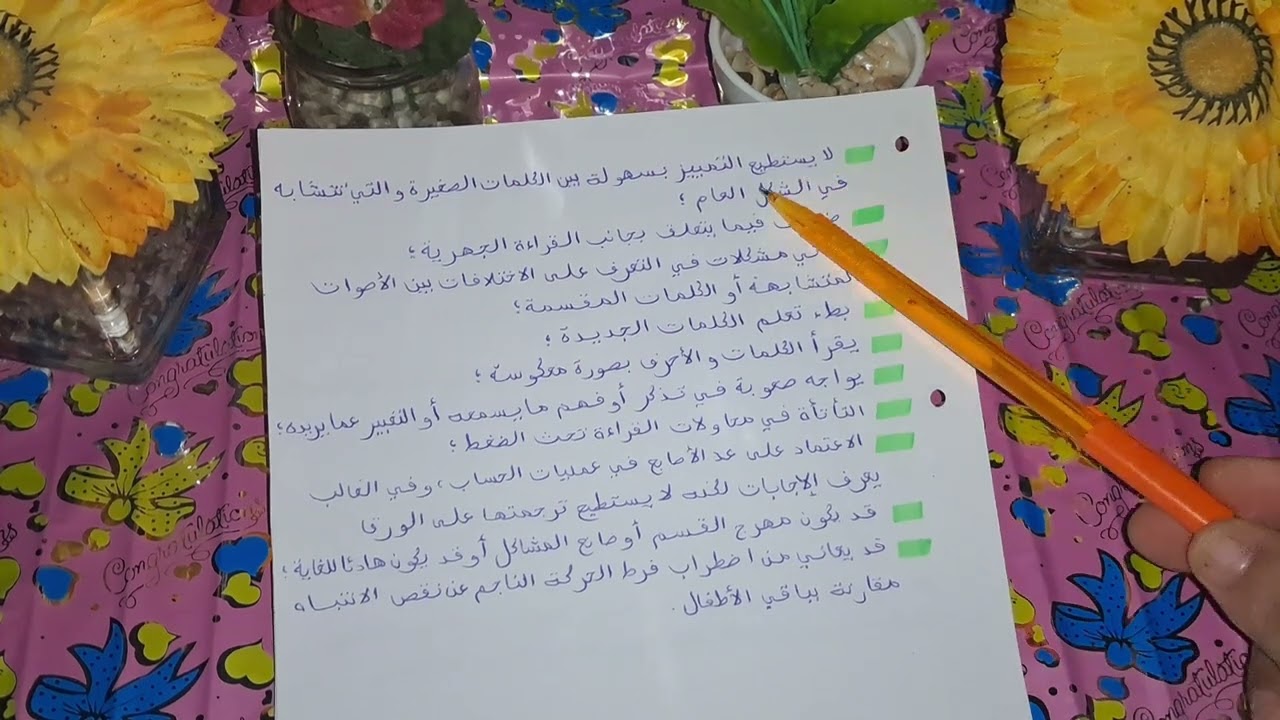 لا يستطيع التمييز بسهولة بين الكلمات الصغيرة والتي تتشابه
في الشكل العام ؛
فيما يتعلق بجانب القراءة الجهرية ؛
مشكلات في التعرف على الاختلافات بين الأصوات
المتشابهة أو الكلمات المقسمة ؛
بطء تعلم الكلمات الجديدة ؛
يقرأ الكلمات والأحرف بصورة معكوسة ؛
يواجه صعوبة في تذكر أو فهم ما يسمعه أو التعبير عما يريده ؛
التأتأة في محاولات القراءة تحت الضغط ؛
الاعتماد على عد الأصابع في عمليات الحساب، وفي الغالب
يعرف الإجابات لكنه لا يستطيع ترجمتها على الورق
قد يكون مهرج القسم أو صانع المشاكل أو قد يكون هادئا للغاية ؛
قد يعاني من اضطراب فرط الحركة الناجم عن نقص الانتباه
مقارنة بباقي الأطفال .
Congratulations
Congratulations
Congratulations